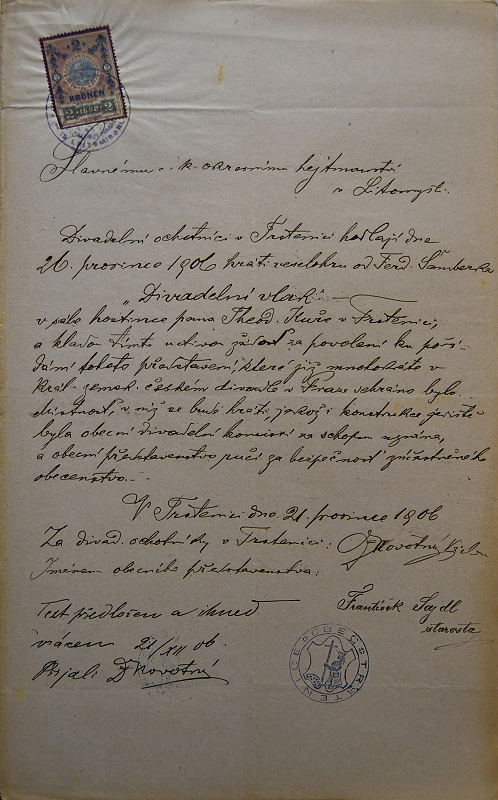 2
KRONEN
2 1898 2
Slavnému c. k. okresnímu hejtmanství
v Litomyšli.
Divadelní ochotníci v Trstenici hodlají dne
26. prosince 1906 hráti veselohru od Ferd. Šamberka
"Divadelní vlak"
v sále hostince pana Theod. Kuře v Trstenici,
a kladou tímto uctivou žádost za povolení ku pořá-
dání tohoto představení, které již mnohokráte v
král. zemsk. českém divadle v Praze sehráno bylo.
Místnost, v níž se bude hráti jakož i konstrukce jeviště
byla obecní divadelní komisí za schopnou uznána,
a obecní představenstvo ručí za bezpečnost zúčastněného
obecenstva.
V Trstenici dne 21. prosince 1906
Za divad. ochotníky v Trstenici: Novotný
Jménem obecního představenstva:
František Sajdl
starosta
Text předložen a ihned
vrácen 21/XII 06.
Přijal: Novotný
OBEC TRSTENICE